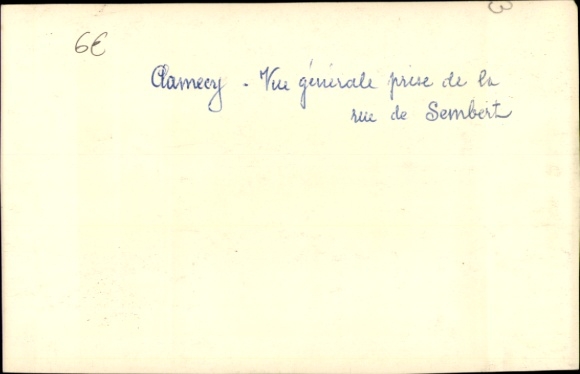 6€
Clamecy - Vue générale prise de la
rue de Sembert